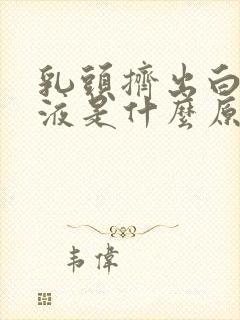 乳頭擠出白
液是什麼原
韦偉